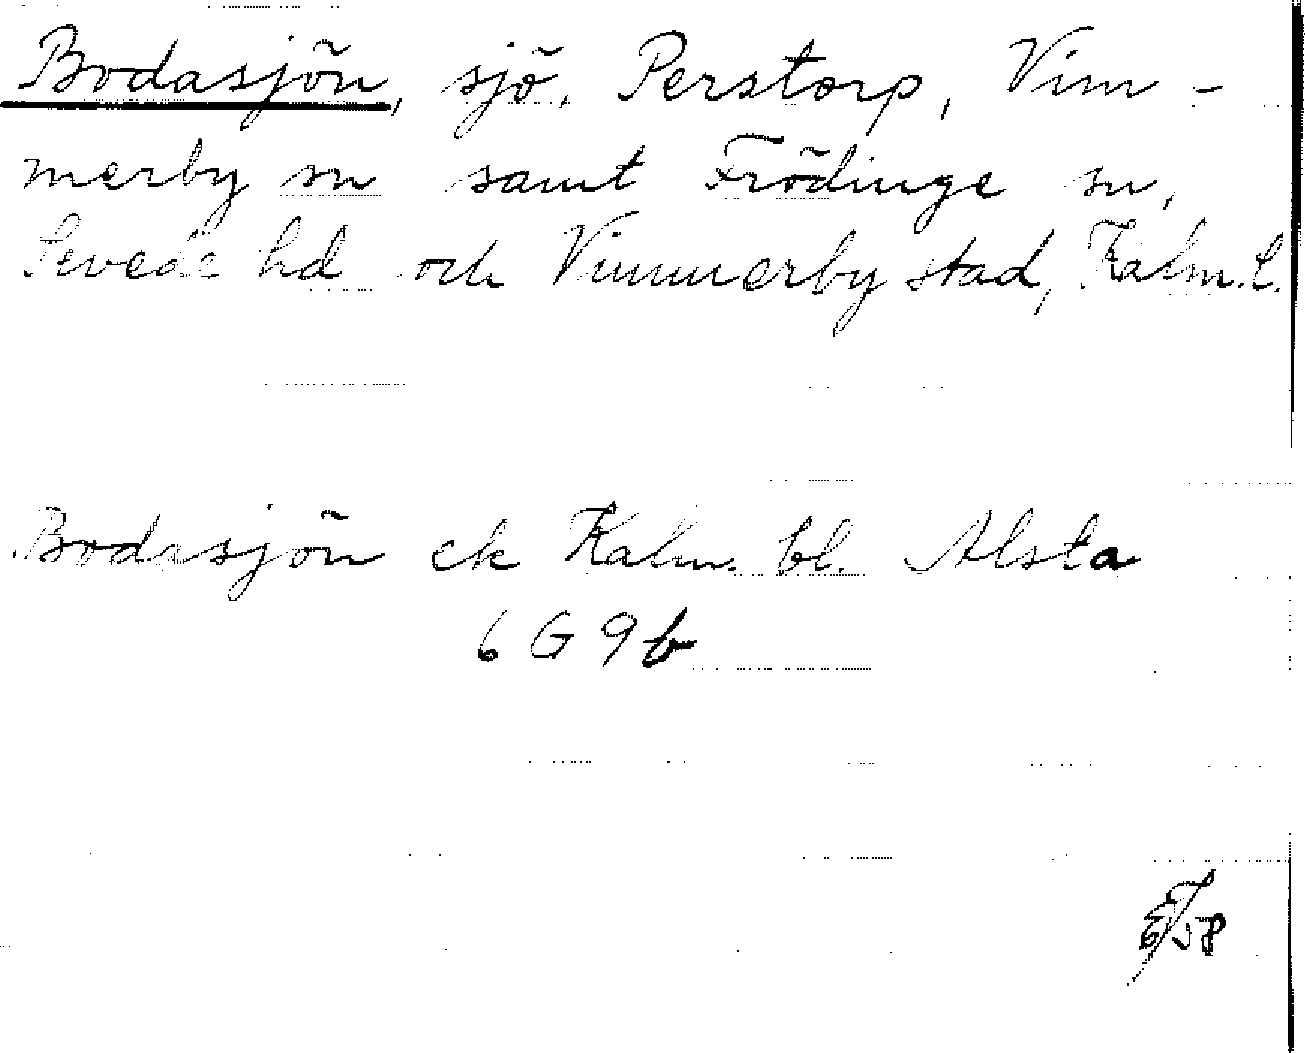 Bodasjön, sjö, Perstorp, Vim-
merby sn samt Frödinge sn,
Sevede hd och Vimmerby stad, Kalm. l.
Bodasjön ek Kalm. bl. Alsta
6 G 9 b